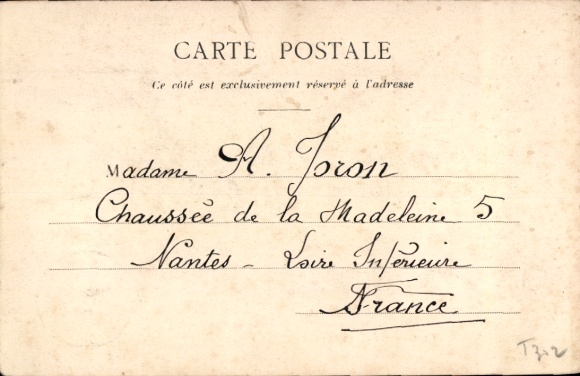 CARTE POSTALE
Ce côté est exclusivement réservé à l'adresse
Madame A. Joron
Chaussée de la Madeleine 5
Nantes - Loire Inférieure
France